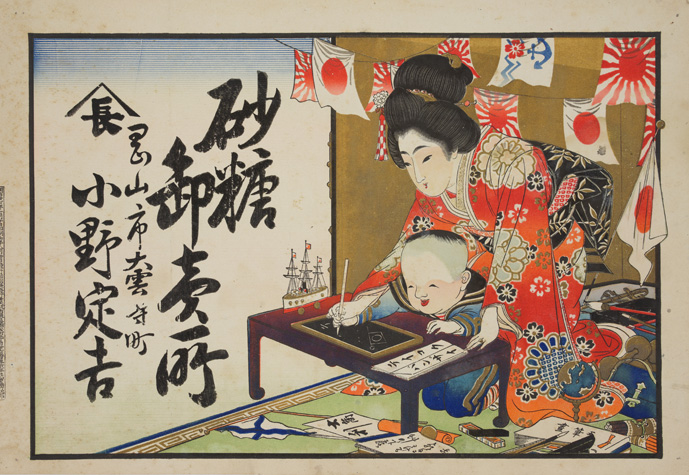 砂糖
卸売所
岡山市大雲寺町
小野定吉
長